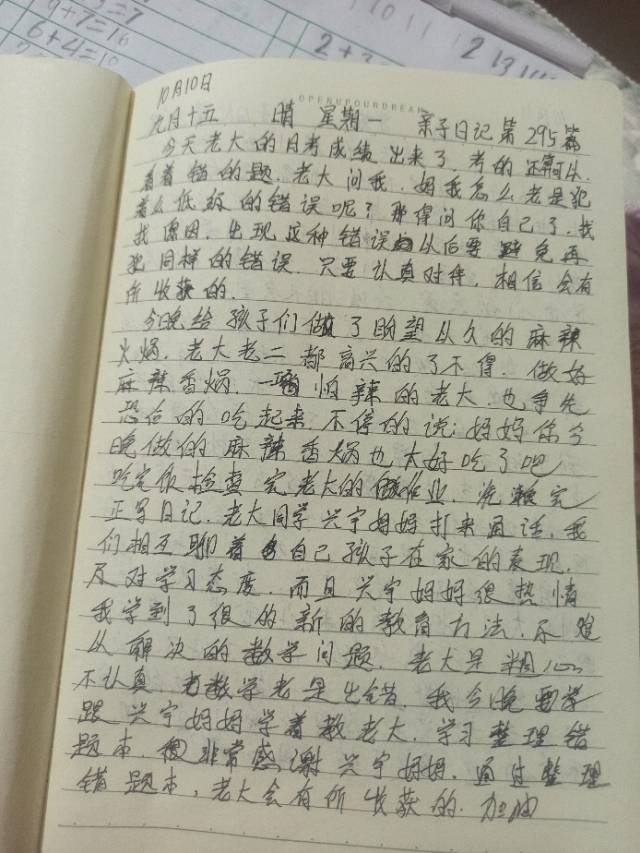 9+7=16
6+4=10
2+3
10 11
2 13 14
10月10日
OPENYOURDREAM
九月十五 晴 星期一 亲子日记第295篇
今天老大的月考成绩出来了,考的还可以.
看着错的题,老大问我,妈我怎么老是犯
着么低级的错误呢?那得问你自己了,找
找原因,出现这种错误以后要避免再
犯同样的错误.只要认真对待,相信会有
所收获的.
今晚给孩子们做了盼望从久的麻辣
火锅,老大老二都高兴的了不得.做好
麻辣香锅,一怕辣的老大,也争先
恐后的吃起来,不停的说:妈妈你今
晚做的麻辣香锅也太好吃了吧
吃完饭检查完老大的作业,洗完
正写日记,老大同学兴宇妈妈打来通话,我
们相互聊着自己孩子在家的表现,
及对学习态度,而且兴宇妈妈很热情
我学到了很的新的教育方法,尽
从解决的数学问题.老大是粗心
不认真,数学老是出错,我今晚要学
跟兴宇妈妈学着教老大,学习整理错
题本,非常感谢兴宇妈妈,通过整理
错题本,老大会有所收获的.加油